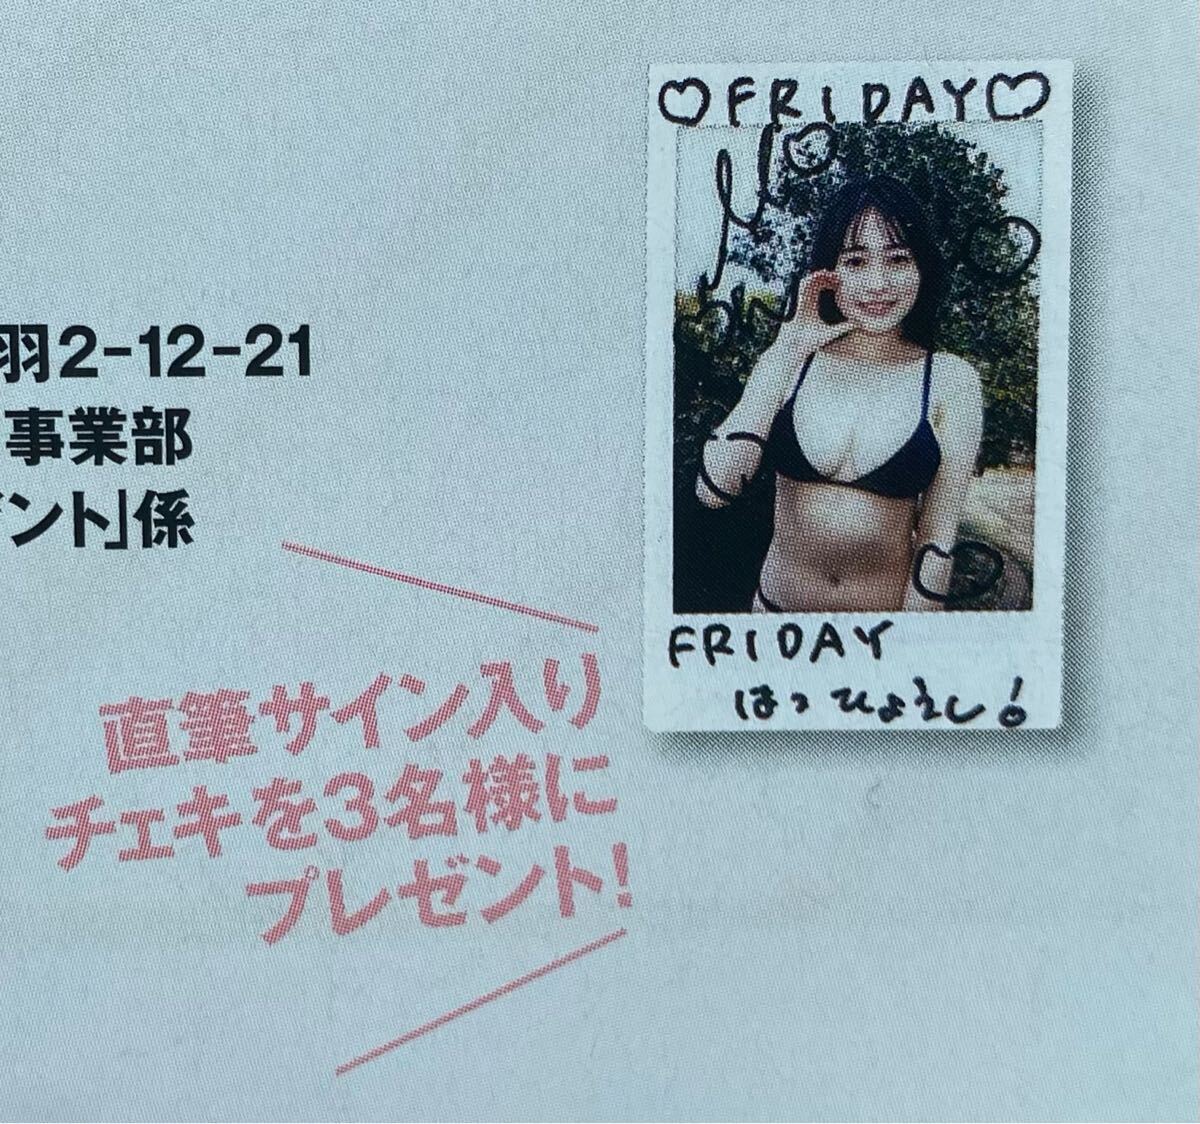 羽2-12-21
事業部
ント」係
直筆サイン入り
チェキを3名様に
プレゼント!
♡FRIDAY♡
FRIDAY
はつひょうし!